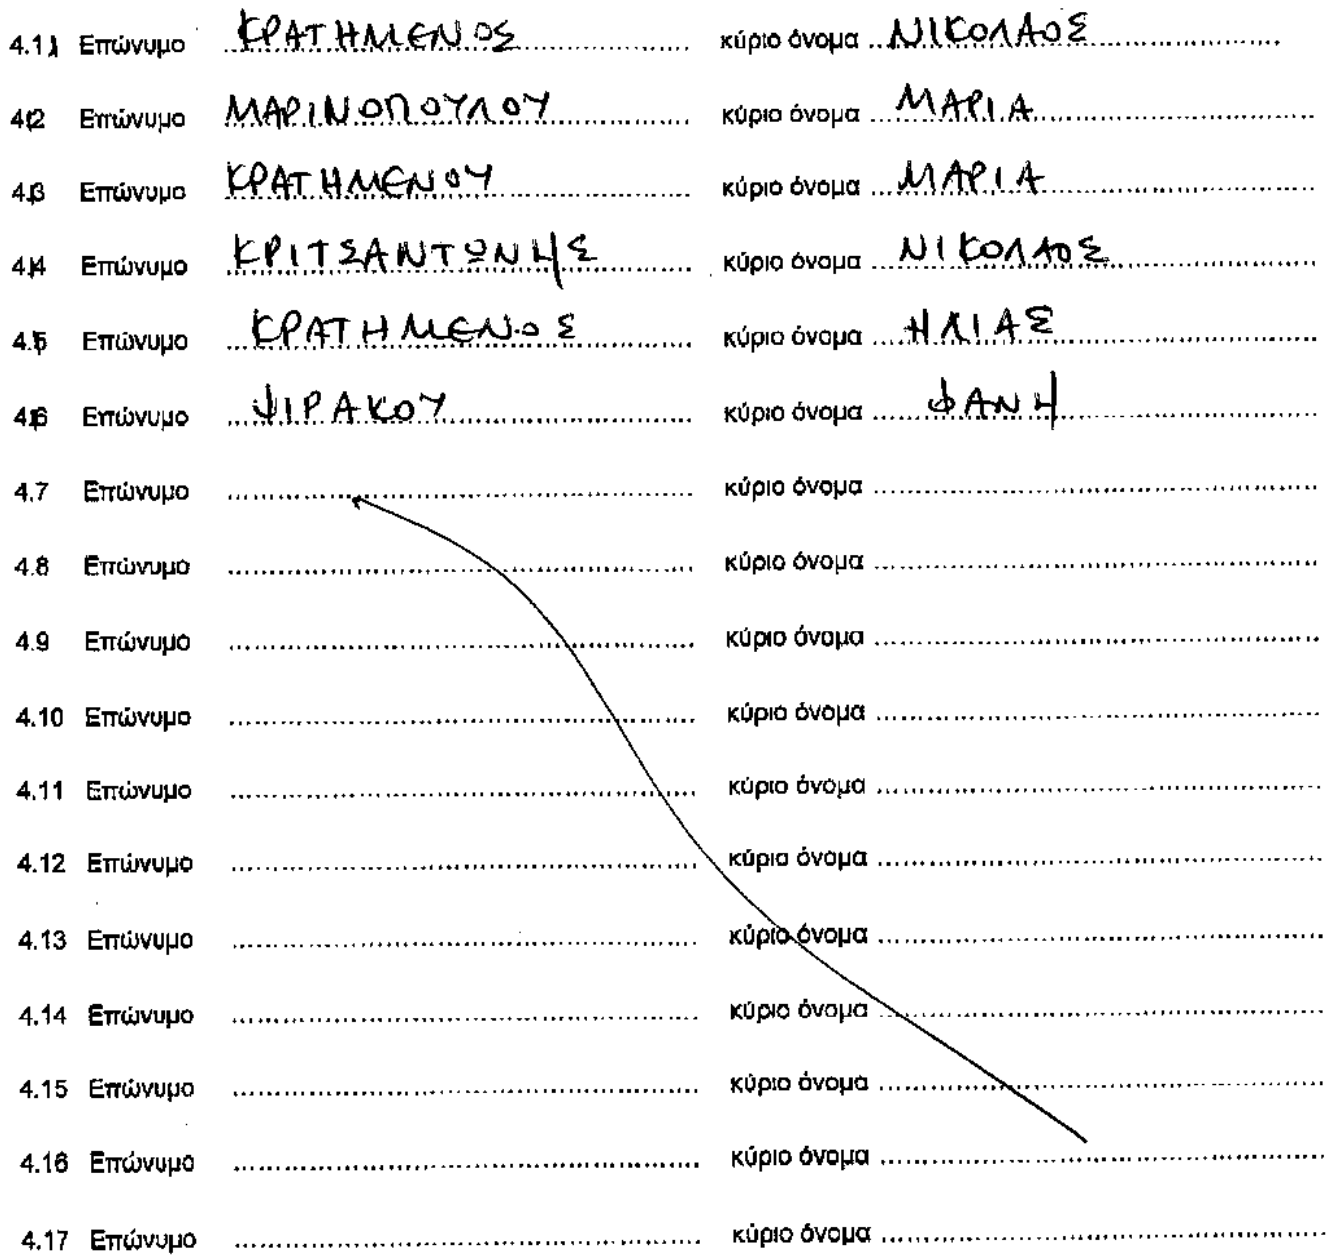 4.1 Επώνυμο ΚΡΑΤΗΜΕΝΟΣ κύριο όνομα ΝΙΚΟΛΑΟΣ
4.2 Επώνυμο ΜΑΡΙΝΟΠΟΥΛΟΥ κύριο όνομα ΜΑΡΙΑ
4.3 Επώνυμο ΚΡΑΤΗΜΕΝΟΥ κύριο όνομα ΜΑΡΙΑ
4.4 Επώνυμο ΚΡΙΤΣΑΝΤΩΝΗΣ κύριο όνομα ΝΙΚΟΛΑΟΣ
4.5 Επώνυμο ΚΡΑΤΗΜΕΝΟΣ κύριο όνομα ΗΛΙΑΣ
4.6 Επώνυμο ΨΙΡΑΚΟΥ κύριο όνομα ΦΑΝΗ
4.7 Επώνυμο κύριο όνομα
4.8 Επώνυμο κύριο όνομα
4.9 Επώνυμο κύριο όνομα
4.10 Επώνυμο κύριο όνομα
4.11 Επώνυμο κύριο όνομα
4.12 Επώνυμο κύριο όνομα
4.13 Επώνυμο κύριο όνομα
4.14 Επώνυμο κύριο όνομα
4.15 Επώνυμο κύριο όνομα
4.16 Επώνυμο κύριο όνομα
4.17 Επώνυμο κύριο όνομα